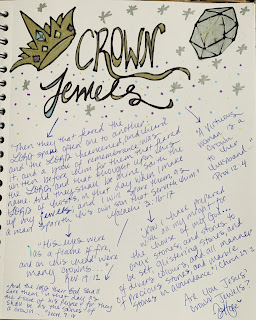 CROWN
Jewels
Then they that feared the
LORD spake often one to another:
and the LORD hearkened, and heard
it, and a book of remembrance was
written before him for them that feared
the LORD and that thought upon his
name. And they shall be mine, saith the
LORD of hosts, in that day when I make
up my jewels; and I will spare them, as
a man spareth his own son that serveth him.
Malachi 3:16-17
A virtuous
woman is a
crown to
her
husband
Prov 12:4
His eyes were
as a flame of fire,
and on his head were
many crowns...
Rev 19:12
And the LORD their God shall
save them in that day as
the flock of his people: for they
shall be as the stones of
a crown...
Now I have prepared
with all my might for
the house of my God
onyx stones, and stones to
be set, glistering stones, and
of divers colours, and all manner
of precious stones, and marble
stones in abundance. 1 Chron 29:2
Are you Jesus'
crown jewels?